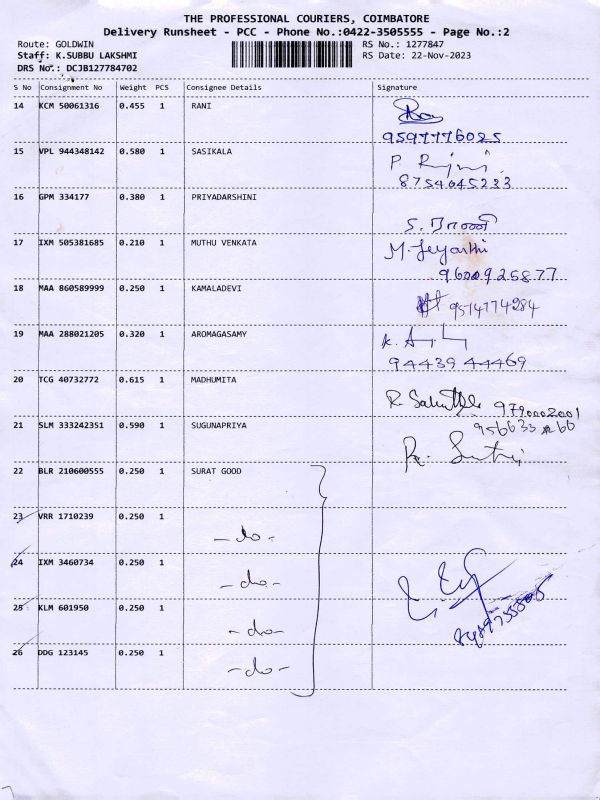 THE PROFESSIONAL COURIERS, COIMBATORE
Delivery Runsheet - PCC - Phone No.:0422-3505555 - Page No.:2
Route: GOLDWIN RS No.: 1277847
Staff: K.SUBBU LAKSHMI RS Date: 22-Nov-2023
DRS No.: DCJB127784702
S No Consignment No Weight PCS Consignee Details Signature
14 KCM 50061316 0.455 1 RANI
9597776025
15 VPL 944348142 0.580 1 SASIKALA P. Rajni
8754045233
16 GPM 334177 0.380 1 PRIYADARSHINI
S. ராணி
17 IXM 505381685 0.210 1 MUTHU VENKATA M. Jeyanthi
9600925877
18 MAA 860589999 0.250 1 KAMALADEVI
9514774284
19 MAA 288021205 0.320 1 AROMAGASAMY
94439 44469
20 TCG 40732772 0.615 1 MADHUMITA
9790002001
21 SLM 333242351 0.590 1 SUGUNAPRIYA
22 BLR 210600555 0.250 1 SURAT GOOD
23 VRR 1710239 0.250 1
-do-
24 IXM 3460734 0.250 1
-do-
25 KLM 601950 0.250 1
-do-
26 DDG 123145 0.250 1
-do-